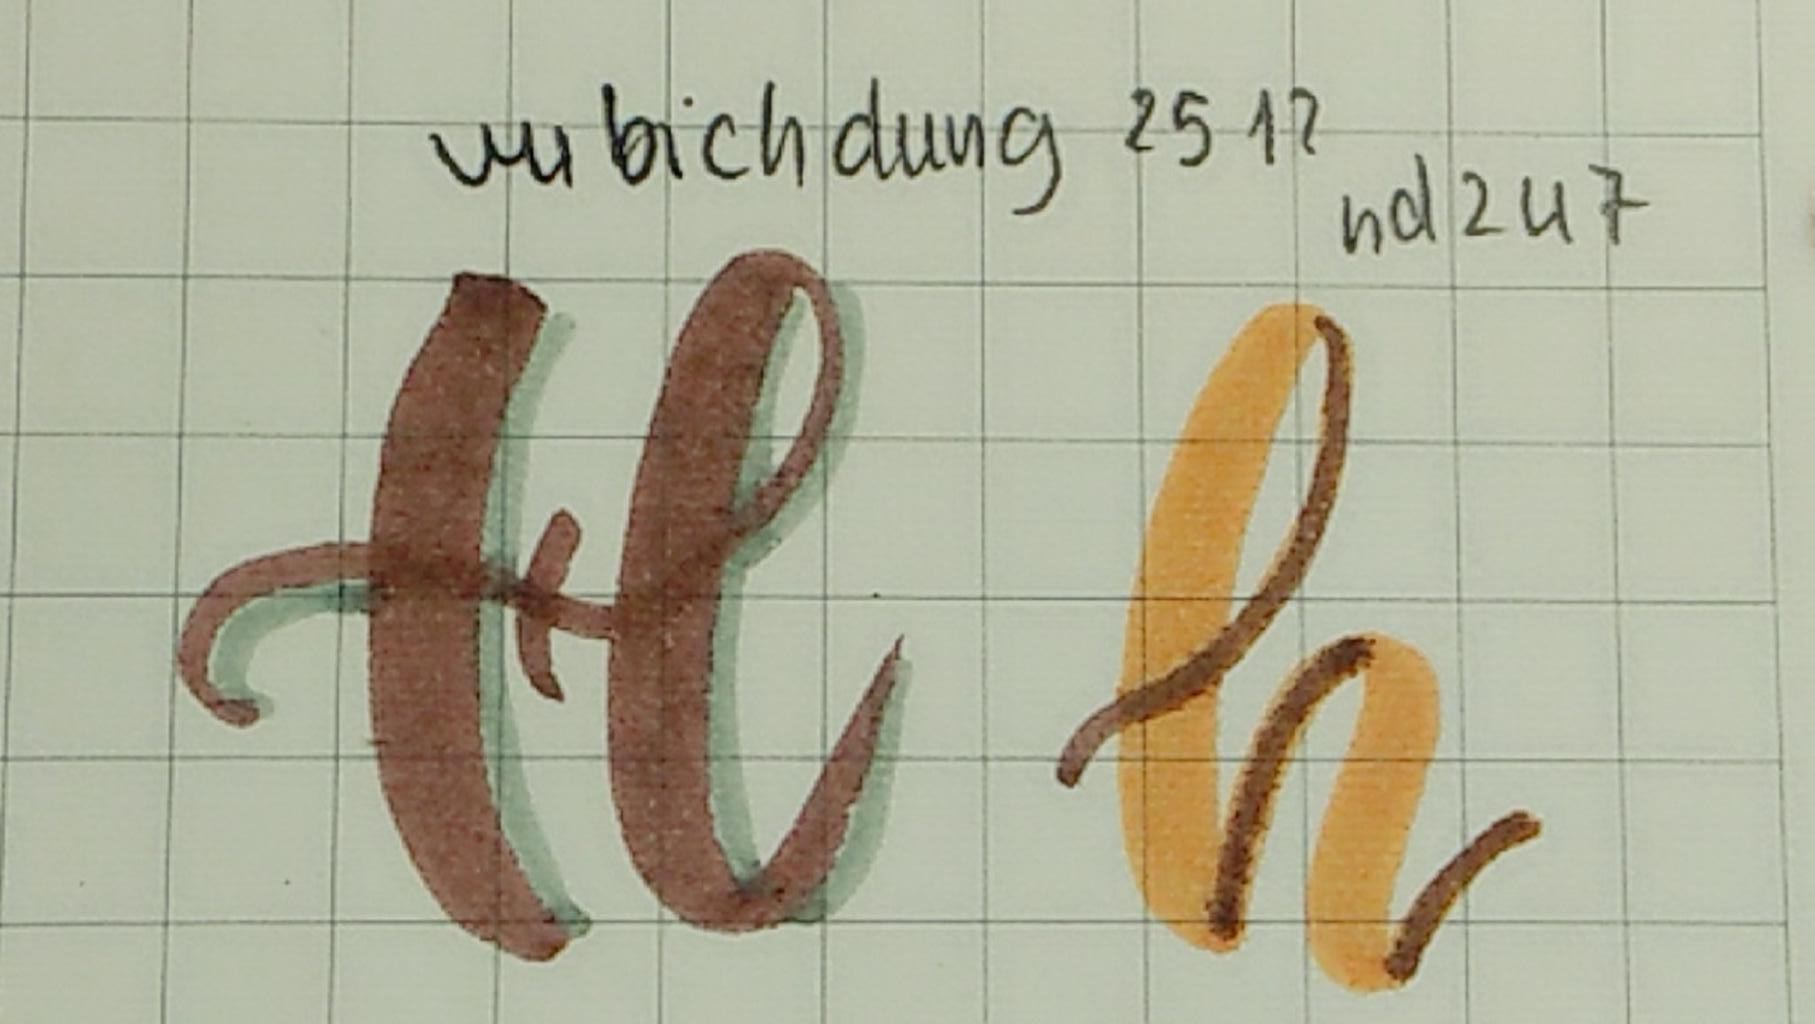 vu bich dung 2512
nd247
H h